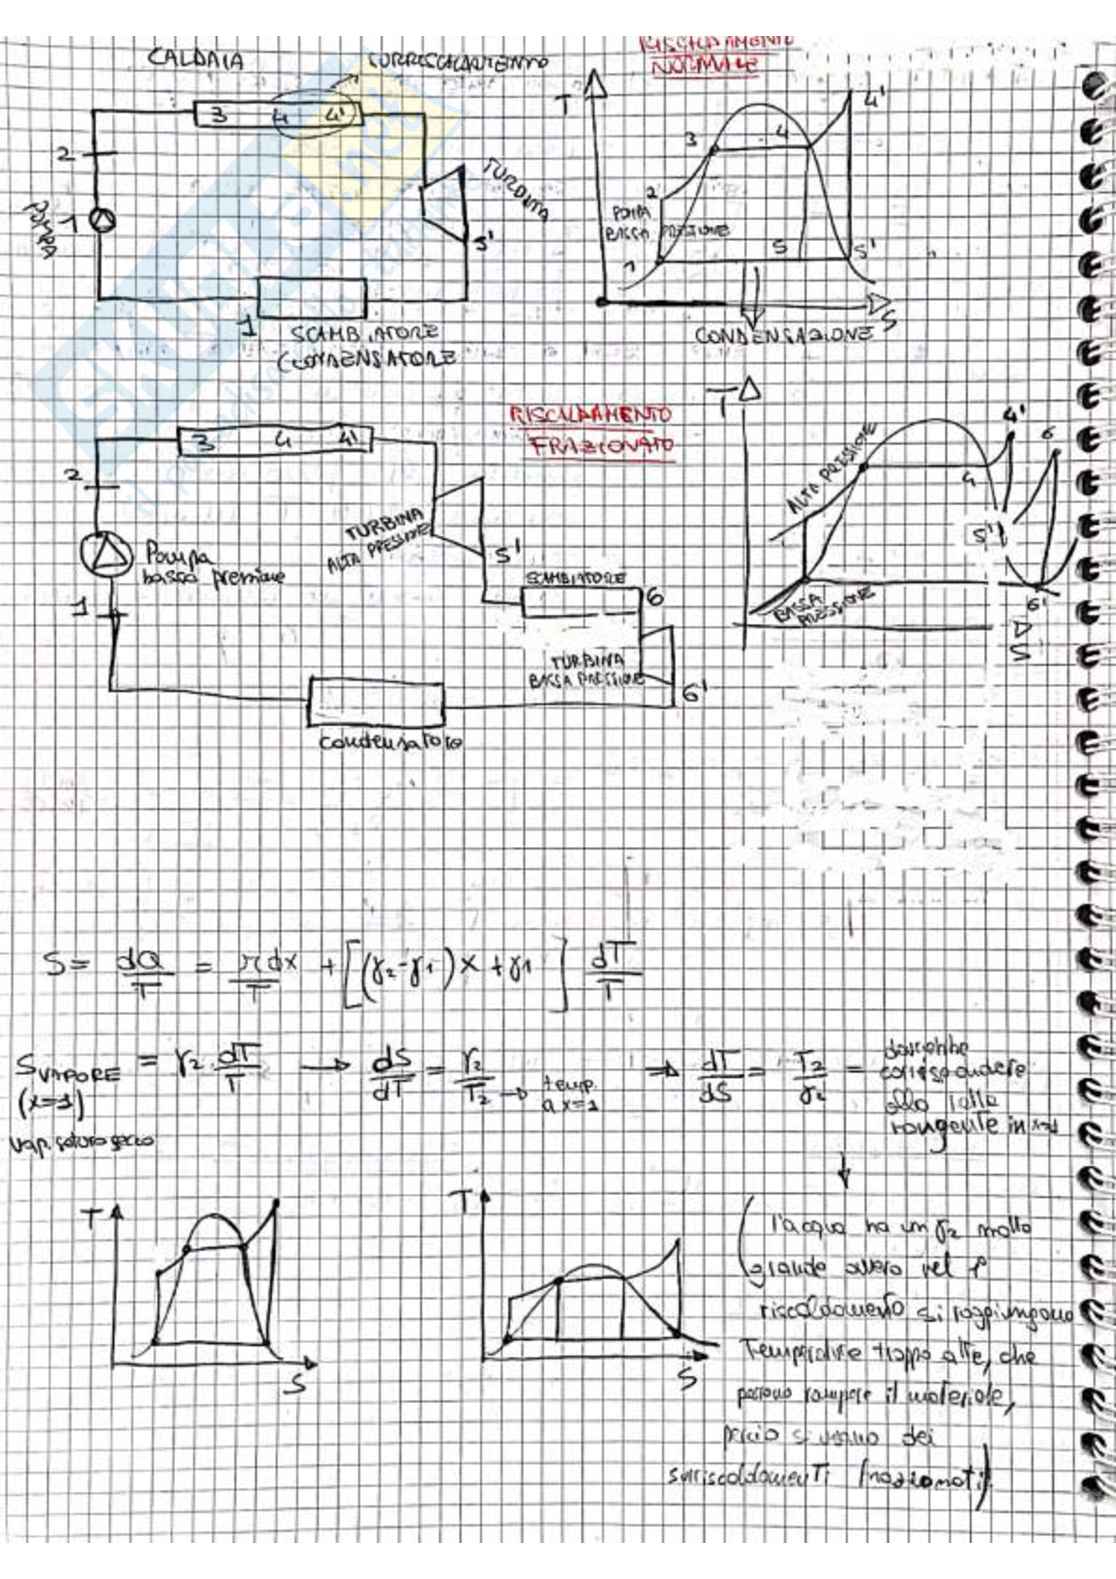 CALDAIA
SURRISCALDAMENTO
3 4 4'
2
POMPA
1
TURBINA
5'
1
SCAMBIATORE
(CONDENSATORE
RISCALDAMENTO
NORMALE
T
4'
3 4
2
POMPA
BASSA PRESSIONE
1 5 5'
S
CONDENSAZIONE
RISCALDAMENTO
FRAZIONATO
3 4 4'
2
Pompa
bassa pressione
1
TURBINA
ALTA PRESSIONE
5'
SCAMBIATORE
6
TURBINA
BASSA PRESSIONE
6'
Condensatore
T
ALTA PRESSIONE
4' 6
4
5'
BASSA
PRESSIONE
6'
S
S = dQ/T = rdx/T + [(γ2-γ1)x + γ1] dT/T
S VAPORE = γ2 · dT/T → dS/dT = γ2/T2 → temp. a x=1 ⇒ dT/dS = T2/γ2 = dovrebbe
corrispondere
alla
tangente in
(x=1)
vap. saturo secco
T
S
T
S
(l'acqua ha un γ2 molto
grande ovvero nel
riscaldamento si raggiungono
Temperature troppo alte, che
possono rompere il materiale,
perciò si usano dei
surriscaldamenti frazionati)